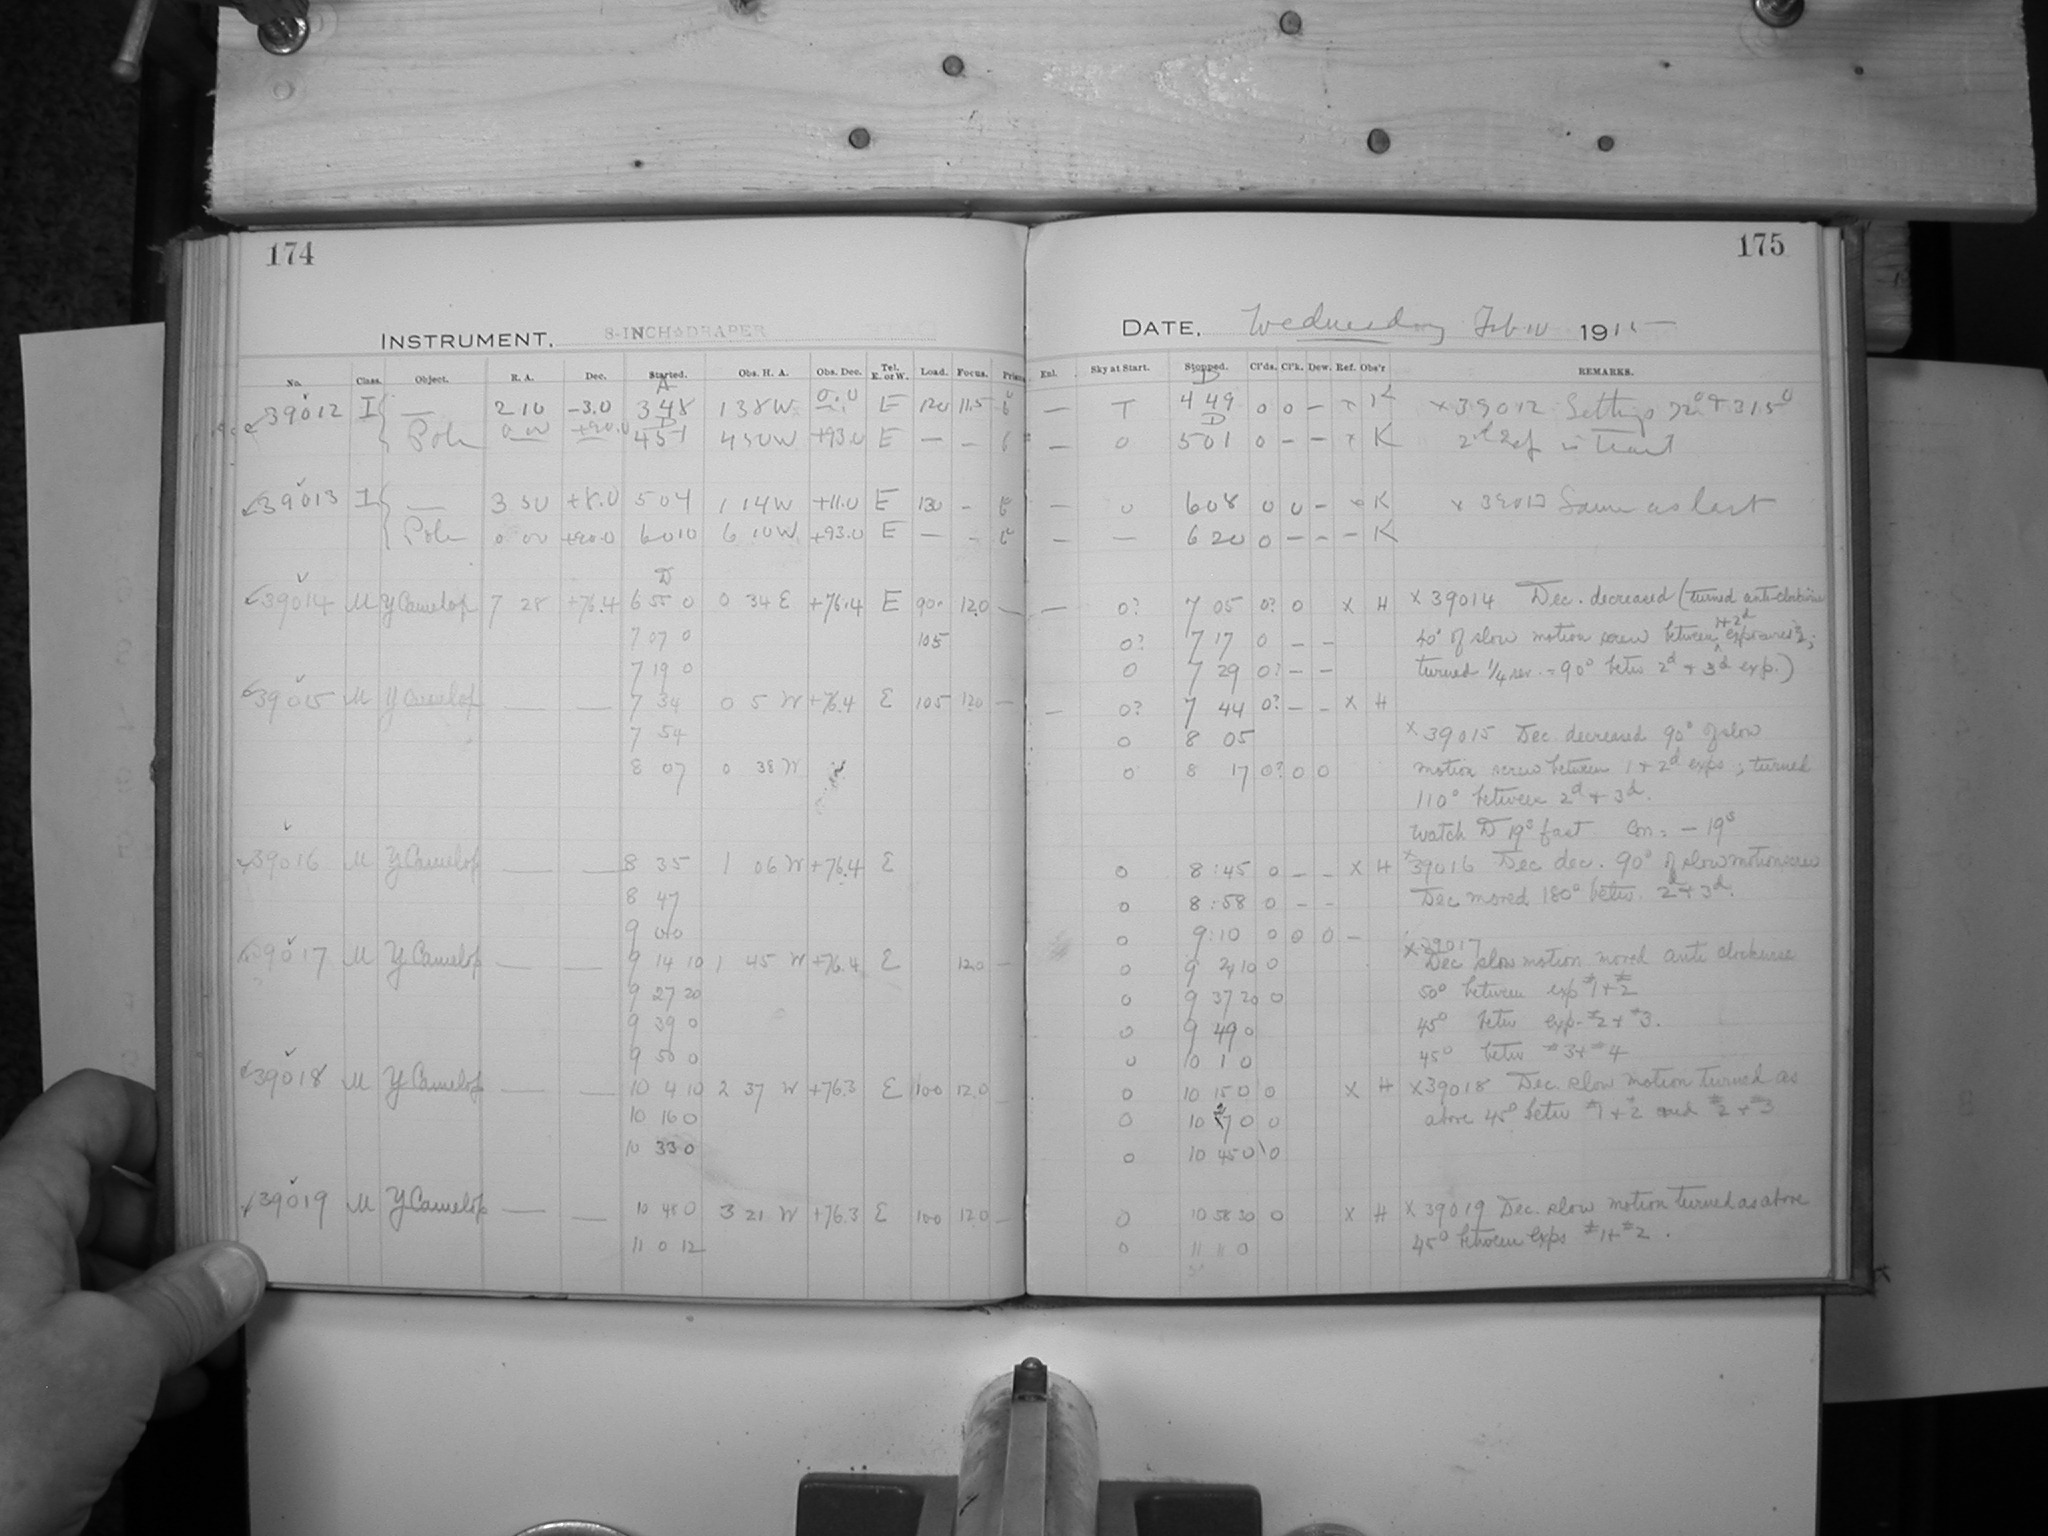 174
INSTRUMENT. 8-INCH DRAPER
No. Class. Object. R. A. Dec. Started. Obs. H. A. Obs. Dec. Tel. E. or W. Load. Focus. Prism
A
39012 I — 2 10 -3.0 3 48 1 38 W 0.0 E 120 11.5 6
D
Pole 0 00 +90.0 4 51 4 50 W +93.0 E — — 6
39013 I — 3 50 +8.0 5 04 1 14 W +11.0 E 130 - 6
Pole 0 00 +90.0 6 010 6 10 W +93.0 E — - 6
D
39014 M Y Camelop 7 28 +76.4 6 55 0 0 34 E +76.4 E 90. 12.0 —
7 07 0 105
7 19 0
39015 M Y Camelop — — 7 34 0 5 W +76.4 E 105 120 —
7 54
8 07 0 38 W
39016 M Y Camelop — — 8 35 1 06 W +76.4 E
8 47
9 00
39017 M Y Camelop — — 9 14 10 1 45 W +76.4 E 12.0 —
9 27 20
9 39 0
9 50 0
39018 M Y Camelop — — 10 4 10 2 37 W +76.3 E 100 12.0 -
10 16 0
10 33 0
39019 M Y Camelop — — 10 48 0 3 21 W +76.3 E 100 12.0 —
11 0 12
175
DATE. Wednesday Feb 10 1915
Enl. Sky at Start. Stopped. Cl'ds. Cl'k. Dew. Ref. Obs'r REMARKS.
D
— T 4 49 0 0 — K x 39012 Settings 72° + 315°
D
— 0 5 01 0 - - K 2d Ref is Trail
— 0 6 08 0 0 - K x 39013 Same as last
— — 6 20 0 - - - K
— 0? 7 05 0? 0 X H x 39014 Dec. decreased (turned anti-clockwise
1+2d
0? 7 17 0 - - 40° of slow motion screw between exposures;
0 7 29 0? - - turned 1/4 rev. = 90° betw 2d + 3d exp.)
— 0? 7 44 0? - - X H
0 8 05 x 39015 Dec. decreased 90° of slow
0 8 17 0? 0 0 motion screw between 1 + 2d exps; turned
110° between 2d + 3d.
Watch D 19s fast Cor. = - 19s
0 8:45 0 - - X H x 39016 Dec dec. 90° of slow motion screw
0 8:58 0 - - Dec moved 180° betw. 2d + 3d.
0 9:10 0 0 0 -
x 39017
0 9 24 10 0 Dec slow motion moved anti clockwise
0 9 37 20 0 50° between exp #1 + #2
0 9 49 0 45° betw exp. #2 + #3.
0 10 1 0 45° betw #3 + #4
0 10 15 0 0 X H x 39018 Dec. slow motion turned as
0 10 27 0 0 above 45° betw #1 + 2 and #2 + #3
0 10 45 0 0
0 10 58 30 0 X H x 39019 Dec. slow motion turned as above
0 11 11 0 45° between exps #1 + #2.